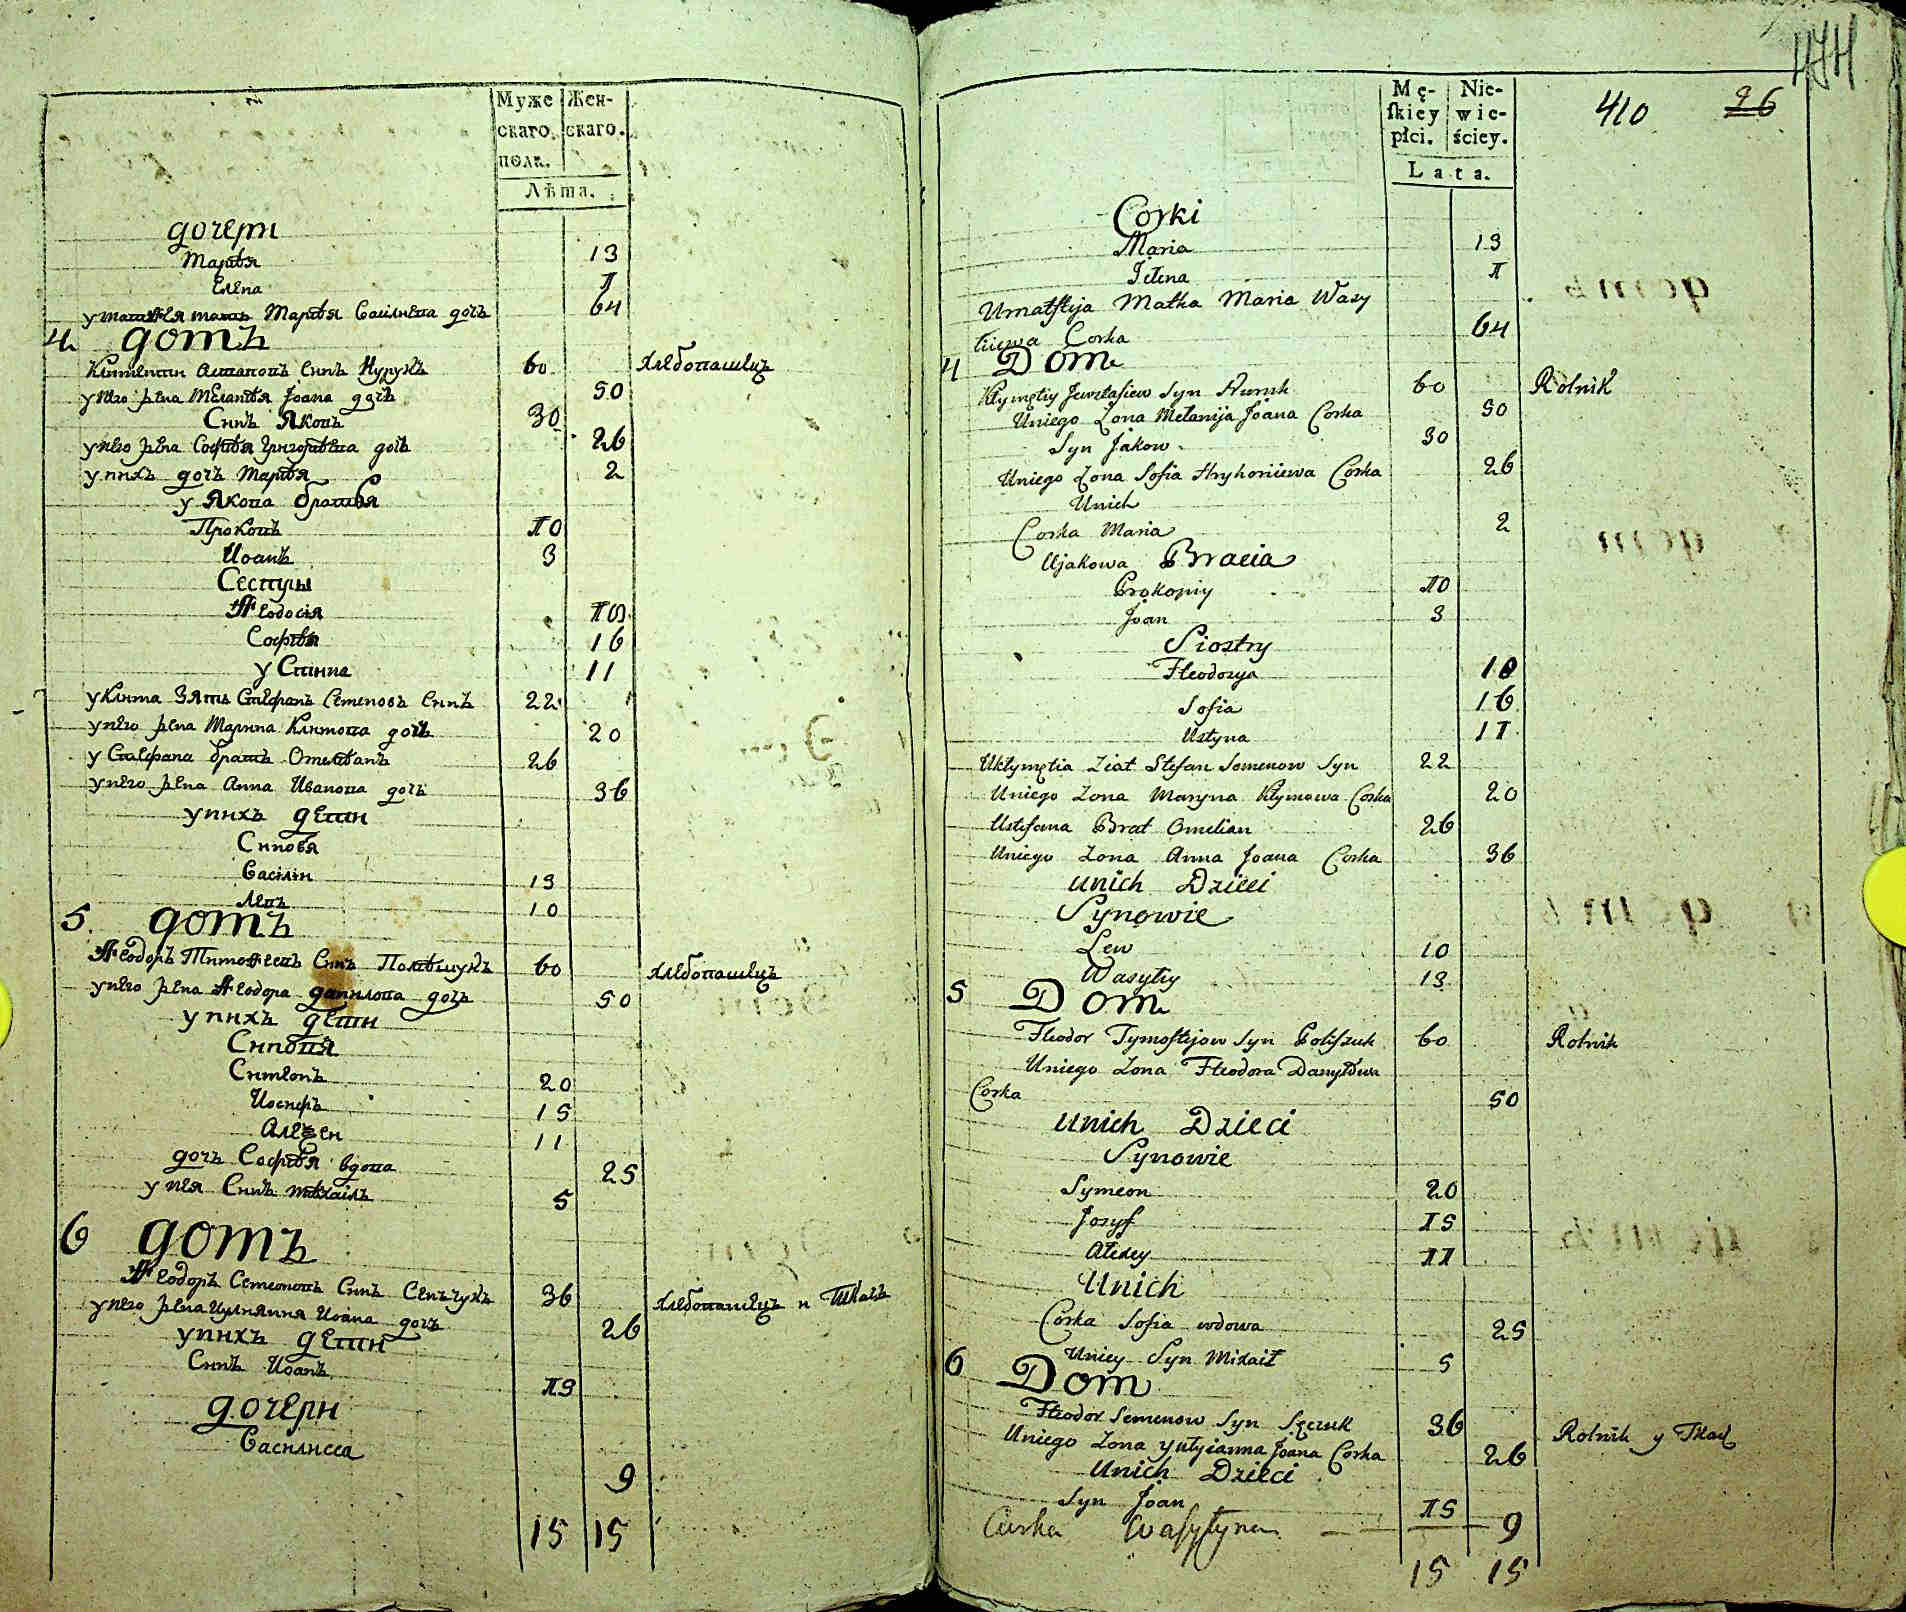 Муже
скаго
полк.
Жен-
скаго.
Лѣта.
дочери
Марія 13
Елена 7
64
4 домъ
60 Хлебопашецъ
у него жена Меланія Іоана дочь 50
Синъ Яковъ 30
у него жена Софія Григоріева дочь 26
у нихъ дочь Марія 2
у Якова братья
Прокопъ 10
Иоанъ 3
Сестры
Ѳеодосія 18
Софія 16
Устина 11
у Клима Зять Стефанъ Семеновъ Синъ 22
у него жена Марина Климова дочь 20
у Стефана братъ Омелянъ 26
у него жена Анна Иванова дочь 36
у нихъ дети
Синовя
Василій 13
Левъ 10
5. домъ
Ѳеодоръ Тимоѳеевъ Синъ Полѣщукъ 60 Хлебопашецъ
у него жена Ѳеодора данилова дочь 50
у нихъ дети
Синовя
Симеонъ 20
Иосифъ 15
Алексей 11
дочь Софія вдова 25
у нея Синъ михаилъ 5
6 домъ
Ѳеодоръ Семеновъ Синъ Сенчукъ 36 Хлебопашецъ и Ткачъ
у него жена Иулиянна Иоана дочь 26
у нихъ дети
Синъ Иоанъ 13
дочери
Василисса
9
15 15
474
410 26
Mę-
ſkiey
płci.
Nie-
wie-
ściey.
Lata.
Corki
Maria 13
Jełena 7
Matka Maria Wasy
liiewa Corka 64
4 Dom
Syn 60 Rolnik
Uniego Zona Mełanija Joana Corka 50
Syn Jakow 30
Uniego Zona Sofia Hryhoriiewa Corka 26
Unich
Corka Maria 2
Ujakowa Bracia
Prokopiy 10
Joan 3
Siostry
Fteodozya 18
Sofia 16
Ustyna 11
Ukłymętia Ziat Stefan Semenow Syn 22
Uniego Zona Maryna Kłymowa Corka 20
Ustefana Brat Omelian 26
Uniego Zona Anna Joana Corka 36
Unich Dzieci
Synowie
Lew 10
Wasyliy 13
5 Dom
Fteodor Tymoftejow Syn Poliszuk 60 Rolnik
Uniego Zona Fteodora Danyłowa
Corka 50
Unich Dzieci
Synowie
Symeon 20
Jozyf 15
Alexey 11
Unich
Corka Sofia wdowa 25
Uniey Syn Mixaił 5
6 Dom
Fteodor Semenow Syn Sęczuk 36 Rolnik y Tkacz
Uniego Zona Yulyianna Joana Corka 26
Unich Dzieci
Syn Joan 15
Curka Wasylyna 9
15 15